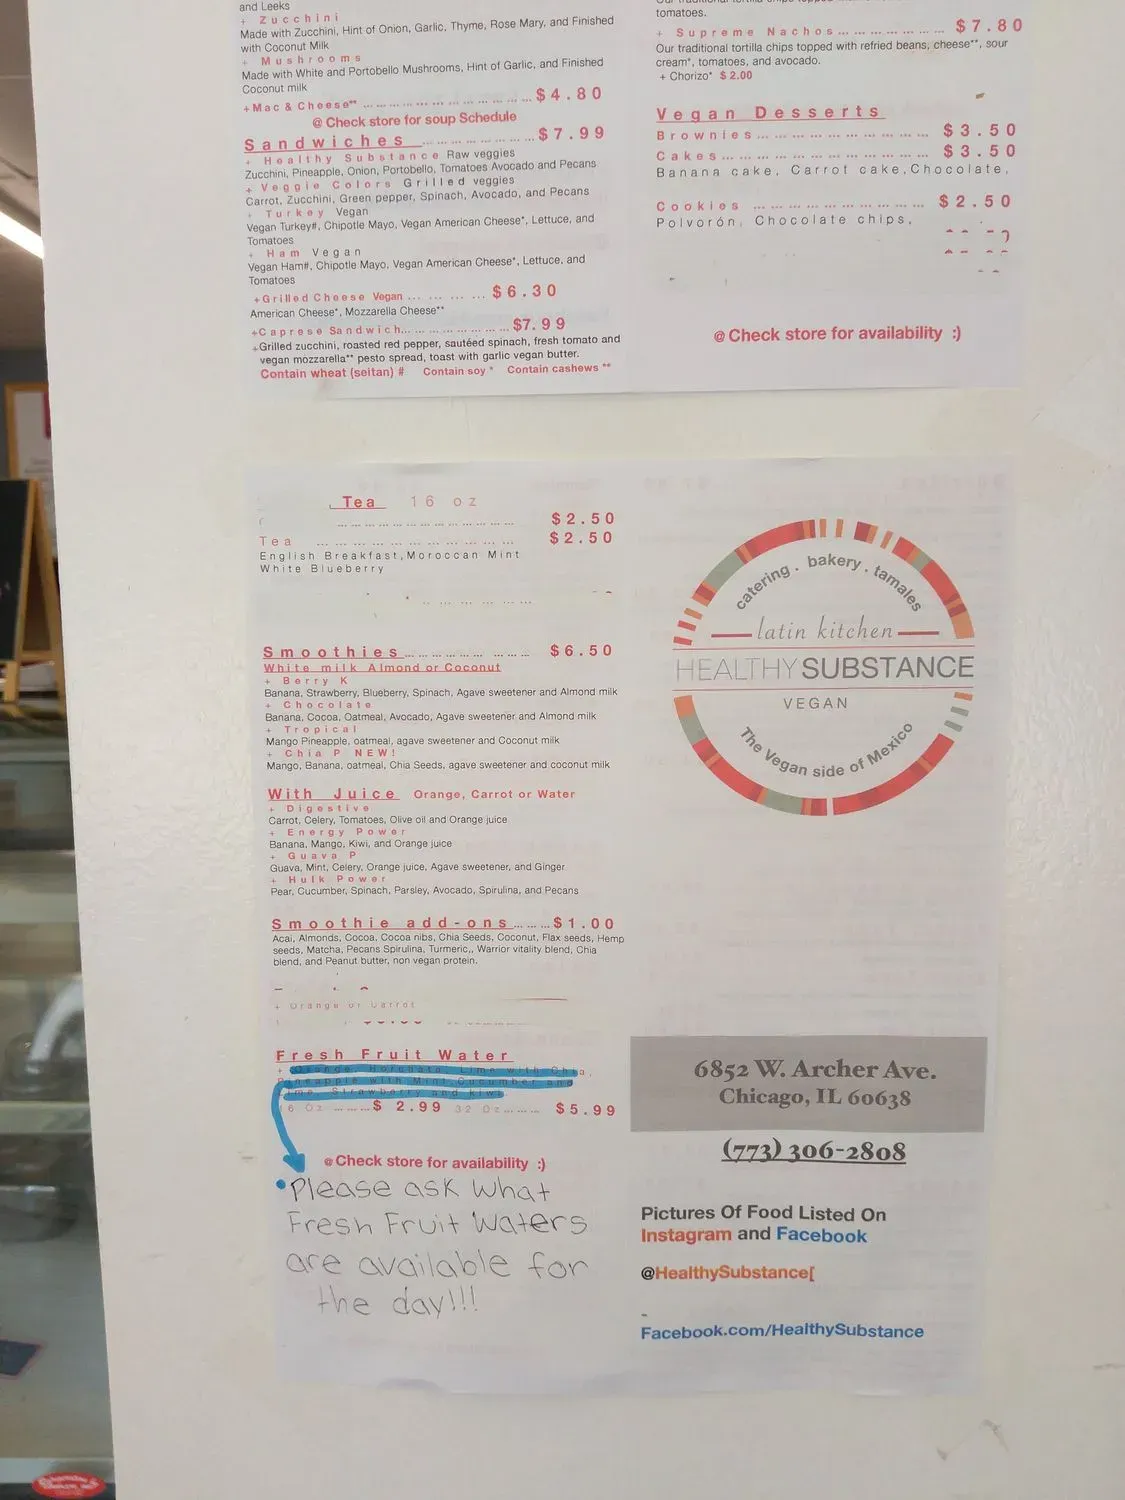 and Leeks
+ Zucchini
Made with Zucchini, Hint of Onion, Garlic, Thyme, Rose Mary, and Finished
with Coconut Milk
+ Mushrooms
Made with White and Portobello Mushrooms, Hint of Garlic, and Finished
Coconut milk
+Mac & Cheese** ... $4.80
@ Check store for soup Schedule
Sandwiches ... $7.99
+ Healthy Substance Raw veggies
Zucchini, Pineapple, Onion, Portobello, Tomatoes Avocado and Pecans
+ Veggie Colors Grilled veggies
Carrot, Zucchini, Green pepper, Spinach, Avocado, and Pecans
+ Turkey Vegan
Vegan Turkey#, Chipotle Mayo, Vegan American Cheese*, Lettuce, and
Tomatoes
+ Ham Vegan
Vegan Ham#, Chipotle Mayo, Vegan American Cheese*, Lettuce, and
Tomatoes
+Grilled Cheese Vegan ... $6.30
American Cheese*, Mozzarella Cheese**
+Caprese Sandwich... $7.99
+Grilled zucchini, roasted red pepper, sautéed spinach, fresh tomato and
vegan mozzarella** pesto spread, toast with garlic vegan butter.
Contain wheat (seitan) # Contain soy * Contain cashews **
tomatoes.
+ Supreme Nachos ... $7.80
Our traditional tortilla chips topped with refried beans, cheese**, sour
cream*, tomatoes, and avocado.
+ Chorizo* $2.00
Vegan Desserts
Brownies ... $3.50
Cakes ... $3.50
Banana cake, Carrot cake,Chocolate,
Cookies ... $2.50
Polvorón, Chocolate chips,
@ Check store for availability :)
Tea 16 oz
... $2.50
Tea ... $2.50
English Breakfast,Moroccan Mint
White Blueberry
Smoothies ... $6.50
White milk Almond or Coconut
+ Berry K
Banana, Strawberry, Blueberry, Spinach, Agave sweetener and Almond milk
+ Chocolate
Banana, Cocoa, Oatmeal, Avocado, Agave sweetener and Almond milk
+ Tropical
Mango Pineapple, oatmeal, agave sweetener and Coconut milk
+ Chia P NEW!
Mango, Banana, oatmeal, Chia Seeds, agave sweetener and coconut milk
With Juice Orange, Carrot or Water
+ Digestive
Carrot, Celery, Tomatoes, Olive oil and Orange juice
+ Energy Power
Banana, Mango, Kiwi, and Orange juice
+ Guava P
Guava, Mint, Celery, Orange juice, Agave sweetener, and Ginger
+ Hulk Power
Pear, Cucumber, Spinach, Parsley, Avocado, Spirulina, and Pecans
Smoothie add-ons ... $1.00
Acai, Almonds, Cocoa, Cocoa nibs, Chia Seeds, Coconut, Flax seeds, Hemp
seeds, Matcha, Pecans Spirulina, Turmeric,, Warrior vitality blend, Chia
blend, and Peanut butter, non vegan protein.
+ Orange or Carrot
Fresh Fruit Water
+ Orange, Horchata, Lime with Chia,
Pineapple with Mint, Cucumber and
Lime, Strawberry and kiwi
16 Oz ... $2.99 32 Oz ... $5.99
@ Check store for availability :)
•Please ask what
Fresh Fruit Waters
are available for
the day!!!
catering . bakery . tamales
latin kitchen
HEALTHY SUBSTANCE
VEGAN
The Vegan side of Mexico
6852 W. Archer Ave.
Chicago, IL 60638
(773) 306-2808
Pictures Of Food Listed On
Instagram and Facebook
@HealthySubstance[
-
Facebook.com/HealthySubstance